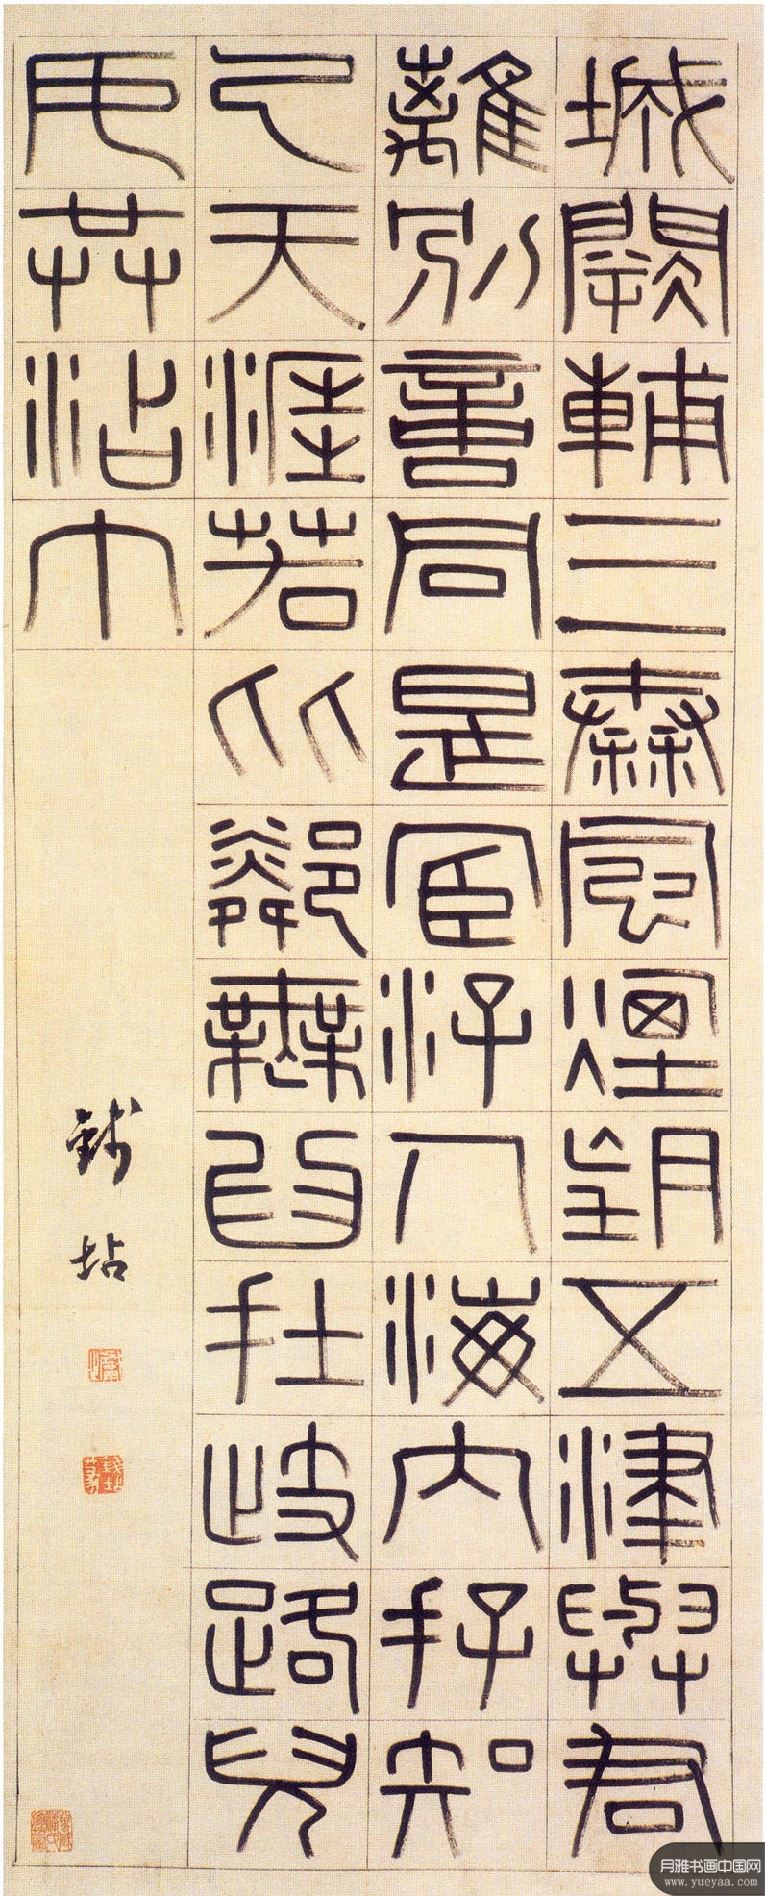 城闕輔三秦風煙望五津與君
離別意同是宦游人海內存知
己天涯若比鄰無為在歧路兒
女共沾巾
錢坫
月雅书画中国网
www.yueyaa.com